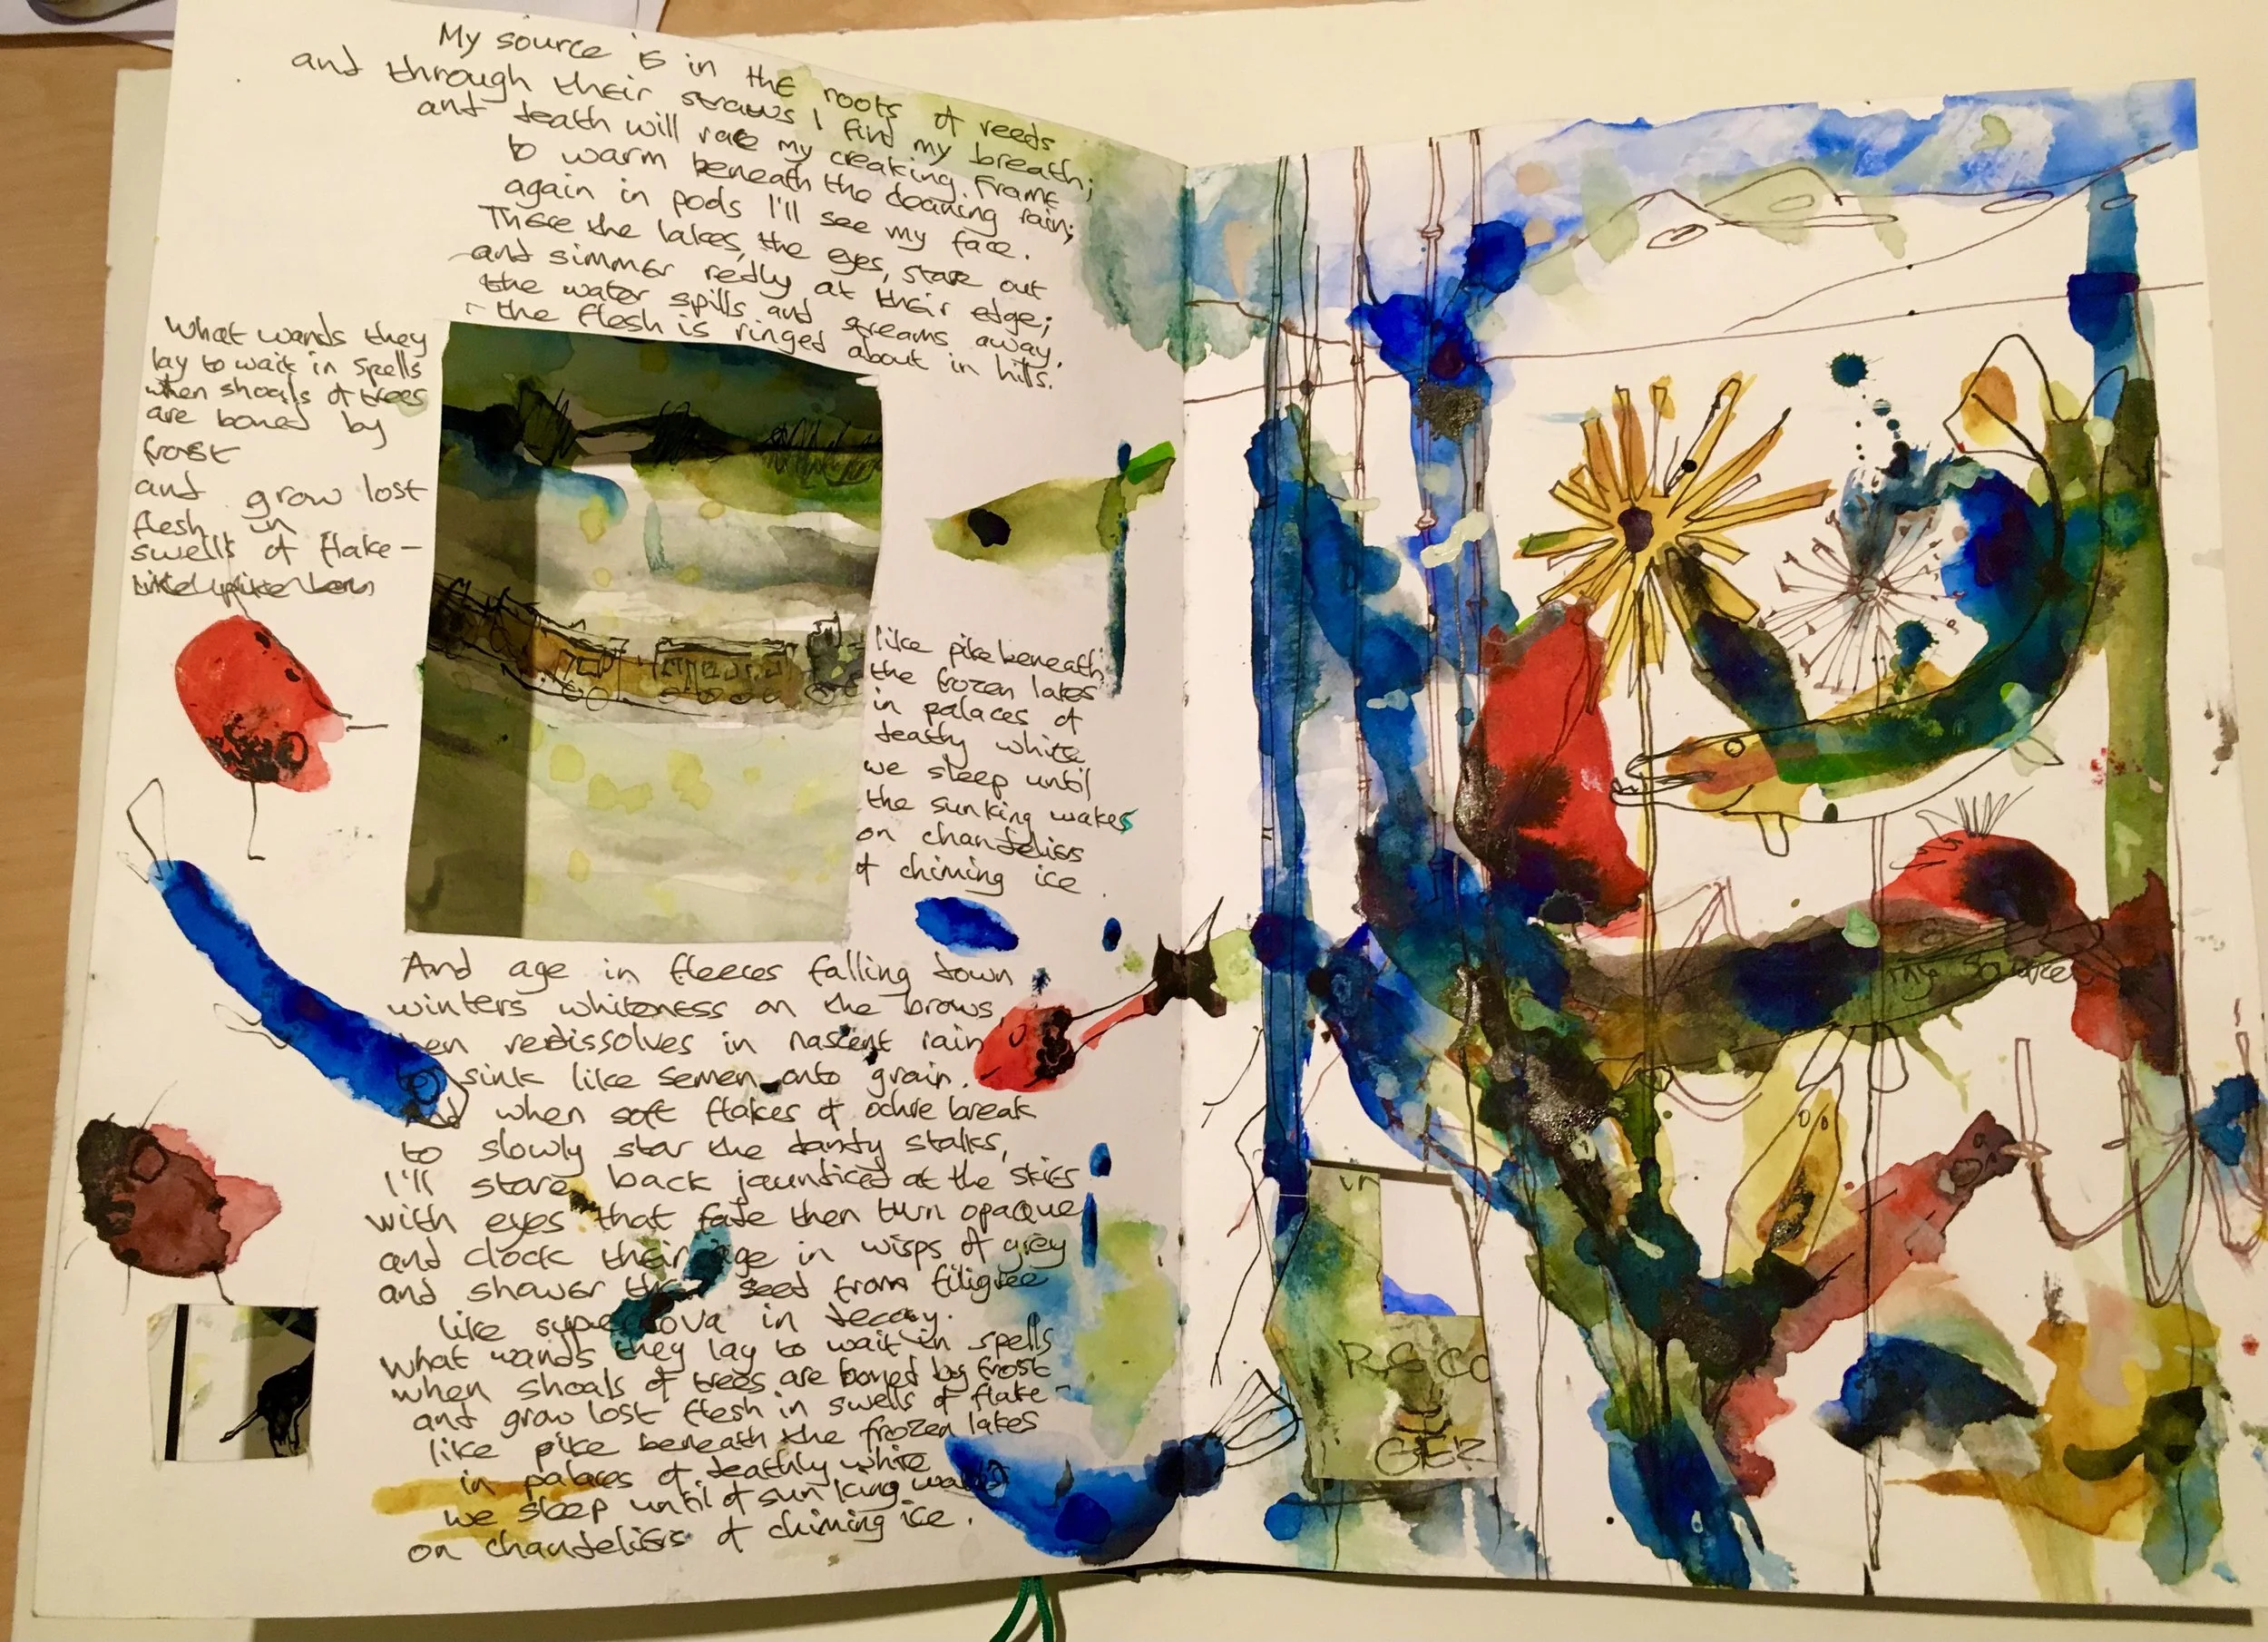 My source is in the roots of reeds
and through their straws I find my breath;
and death will rake my creaking frame
to warm beneath the cleaning rain;
again in pods I'll see my face.
These the lakes, the eyes, stare out
and simmer redly at their edge;
the water spills and streams away,
the flesh is ringed about in hills.
What wands they
lay to wait in spells
when shoals of trees
are boned by
frost
and grow lost
flesh in
swells of flake-
like pike beneath
the frozen lakes
in palaces of
deathy white
we sleep until
the sun king wakes
on chandeliers
of chiming ice.
And age in fleeces falling down
winters whiteness on the brows
redissolves in nascent rain
sink like semen onto grain.
And when soft flakes of ochre break
to slowly star the dandy stalks,
I'll stare back jaundiced at the skies
with eyes that fade then turn opaque
and clock their age in wisps of grey
and shower their seed from filigree
like supernova in decay.
What wands they lay to wait in spells
when shoals of trees are boned by frost
and grow lost flesh in swells of flake-
like pike beneath the frozen lakes
in palaces of deathly white
we sleep until of sun king wakes
on chandeliers of chiming ice.
my source
in